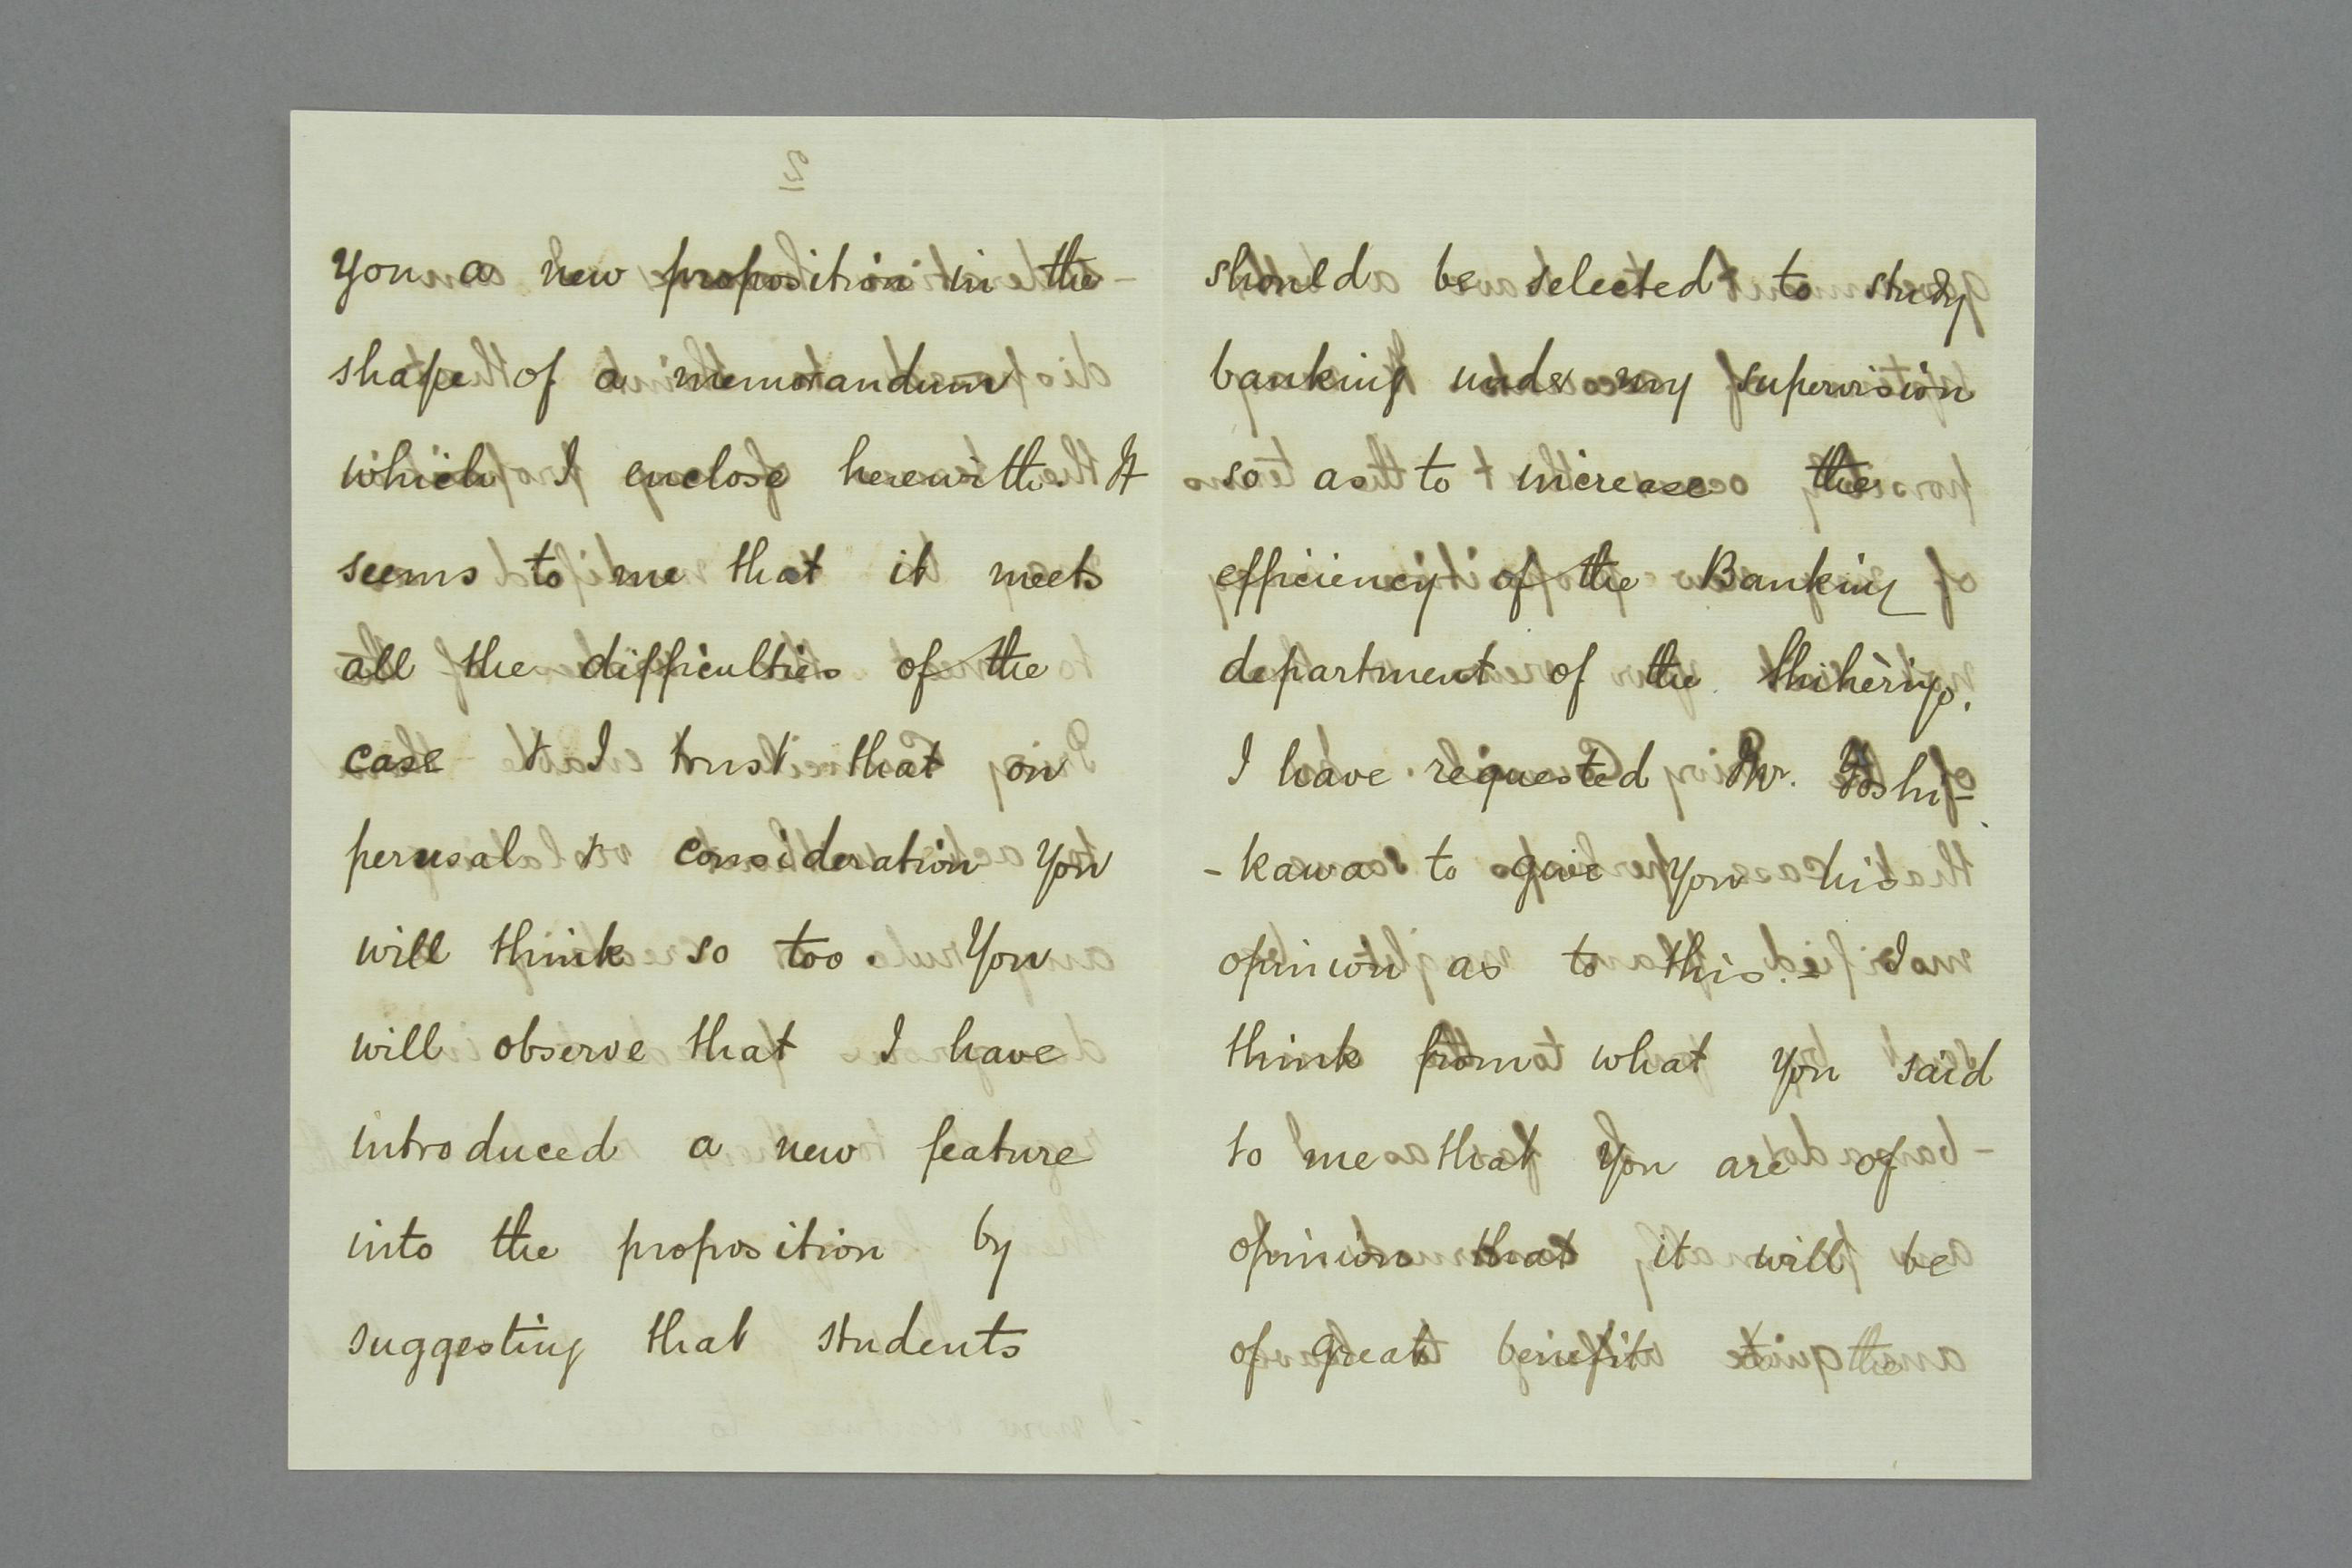 you a new proposition in the
shape of a memorandum
which I enclose herewith. It
seems to me that it meets
all the difficulties of the
case & I trust that on
perusal & consideration you
will think so too. You
will observe that I have
introduced a new feature
into the proposition by
suggesting that students
should be selected to study
banking under my supervision
so as to increase the
efficiency of the Banking
department of the Shiheirio.
I have requested Mr. Yoshi-
-kawa to give you his
opinion as to this. - I
think from what you said
to me that you are of
opinion that it will be
of great benefit to the